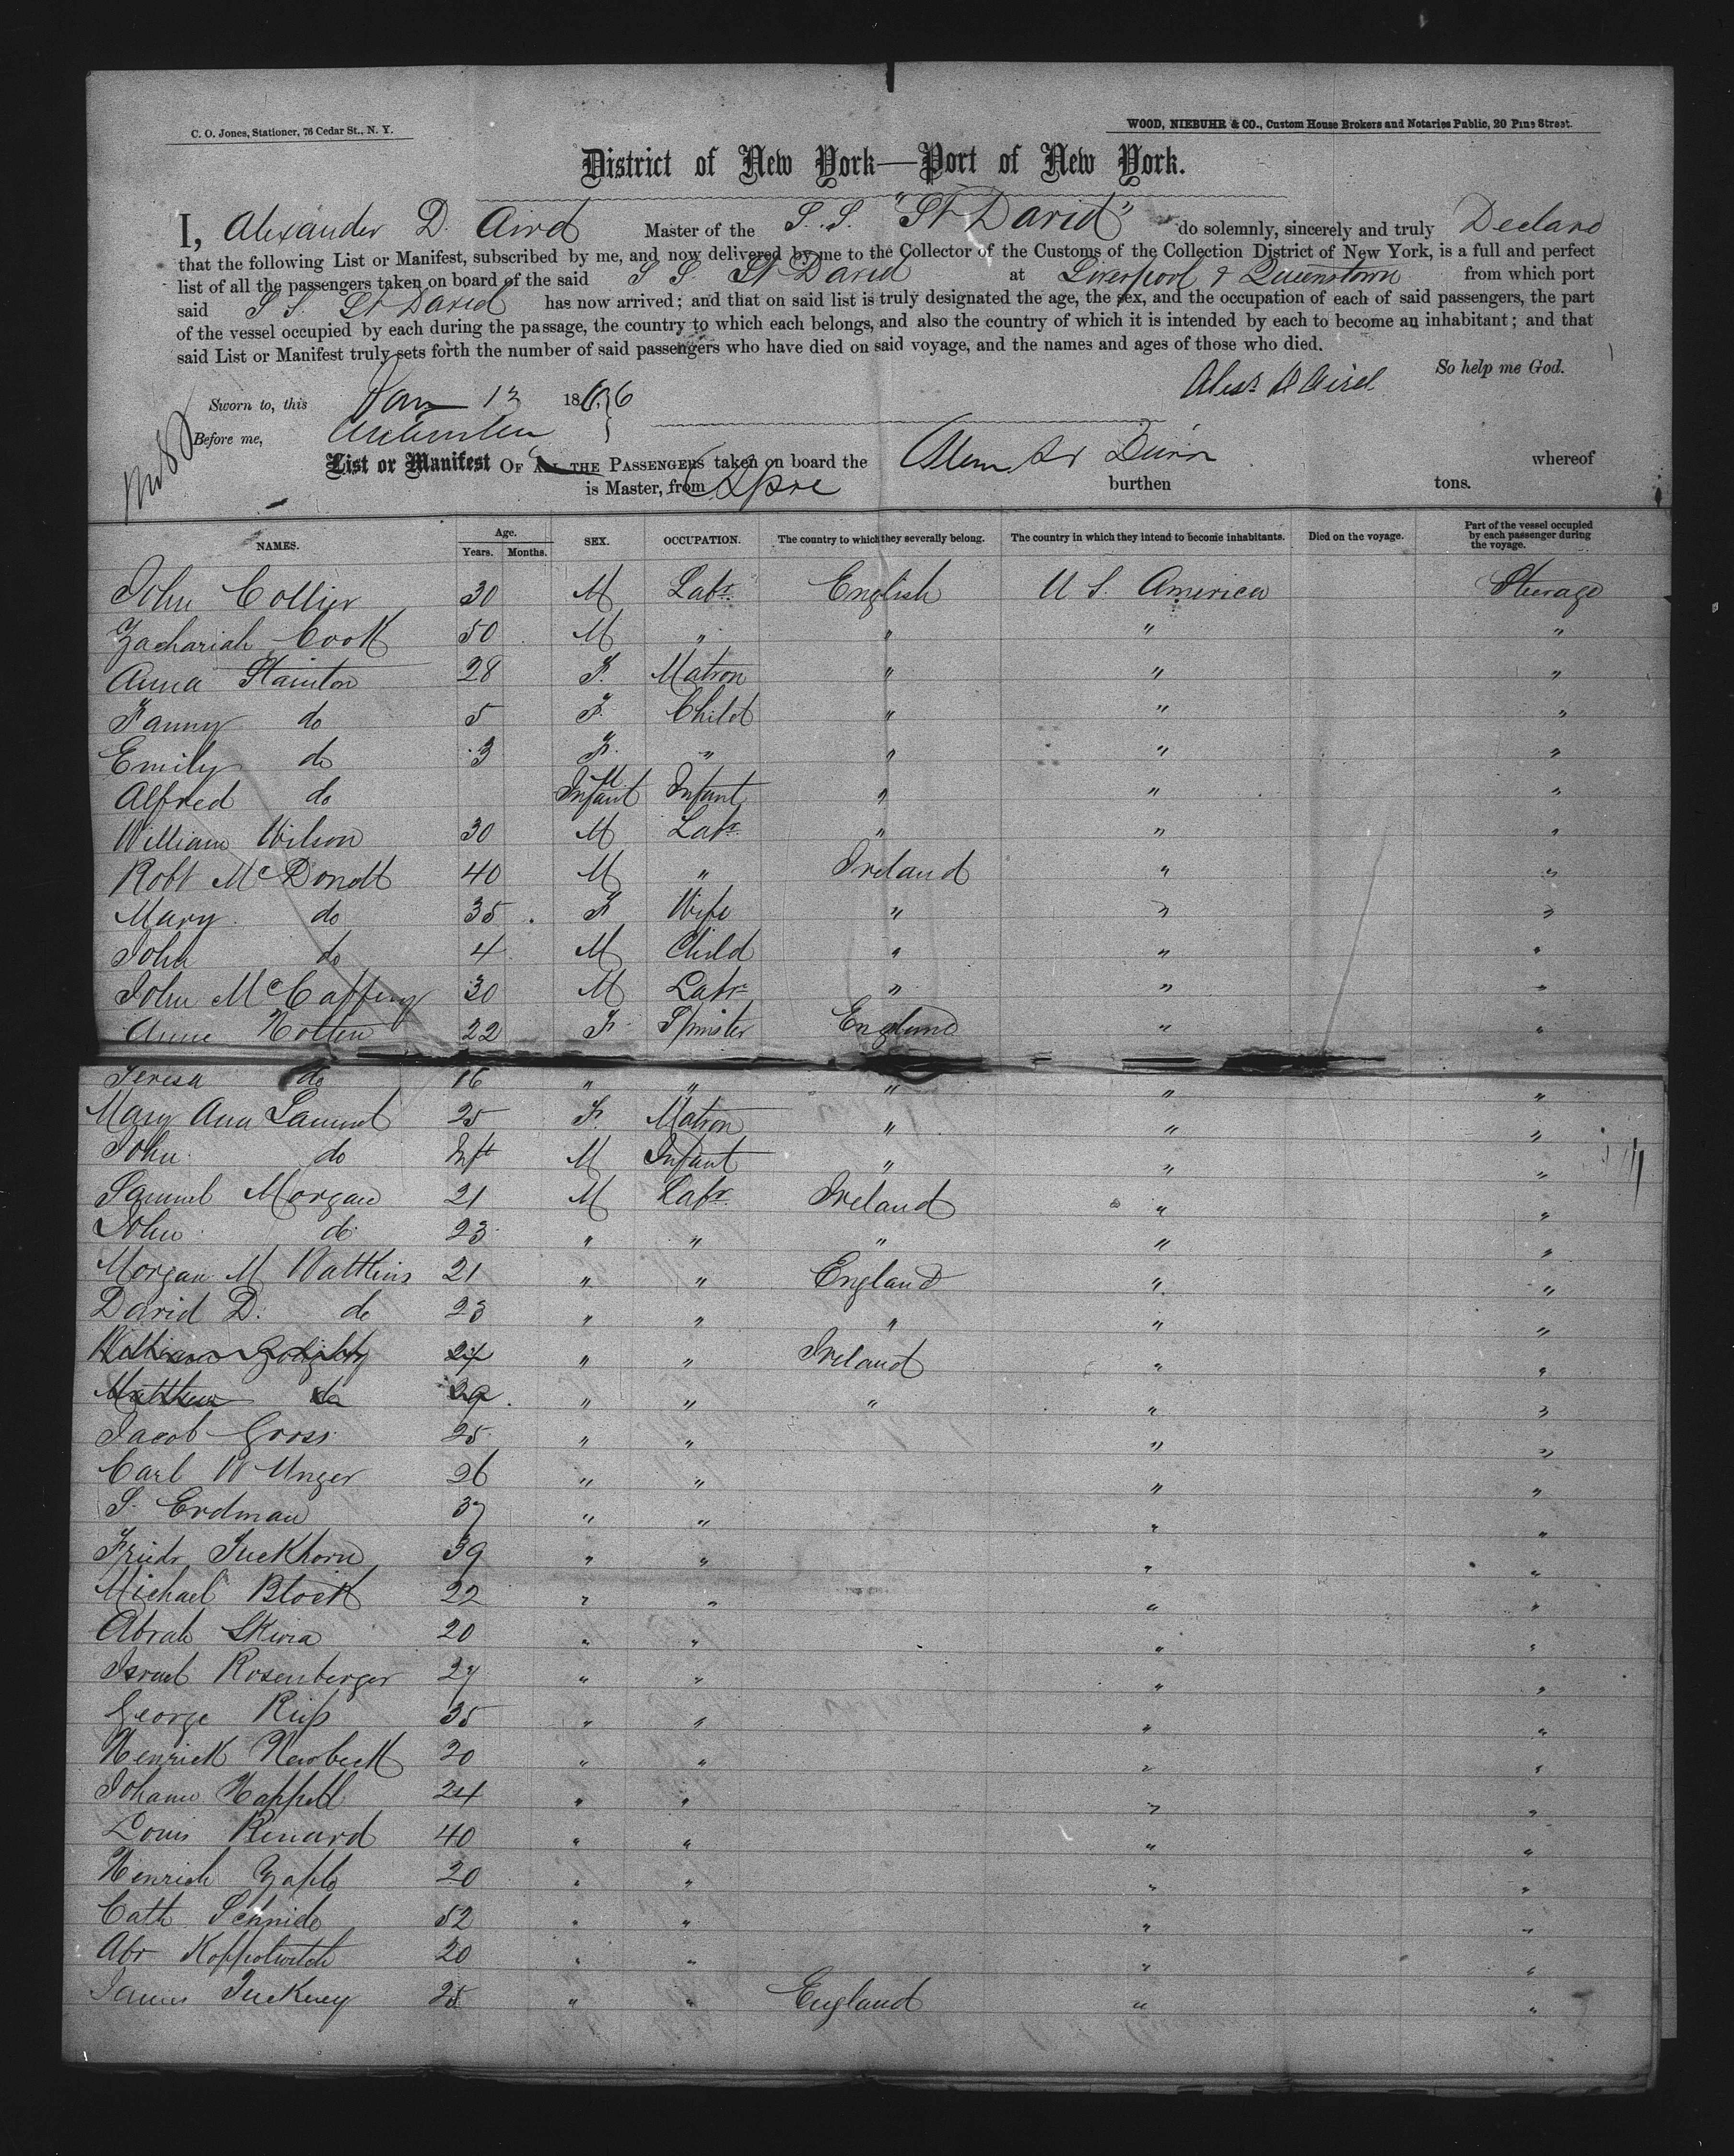 C. O. Jones, Stationer, 76 Cedar St., N. Y.
WOOD, NIEBUHR & CO., Custom House Brokers and Notaries Public, 20 Pine Street.
District of New York—Port of New York.
I, Alexander D. Aird Master of the S. S. "St David" do solemnly, sincerely and truly Declare
that the following List or Manifest, subscribed by me, and now delivered by me to the Collector of the Customs of the Collection District of New York, is a full and perfect
list of all the passengers taken on board of the said S S. St David at Liverpool & Queenstown from which port
said S S. St David has now arrived; and that on said list is truly designated the age, the sex, and the occupation of each of said passengers, the part
of the vessel occupied by each during the passage, the country to which each belongs, and also the country of which it is intended by each to become an inhabitant; and that
said List or Manifest truly sets forth the number of said passengers who have died on said voyage, and the names and ages of those who died.
So help me God.
Alexr D Aird
Sworn to, this Jan 13 1866
Before me,
List or Manifest OF ALL THE PASSENGERS taken on board the whereof
is Master, from burthen tons.
NAMES. Age. Years. Months. SEX. OCCUPATION. The country to which they severally belong. The country in which they intend to become inhabitants. Died on the voyage. Part of the vessel occupied by each passenger during the voyage.
John Collier 30 M Labr. English U S. America Steerage
Zachariah Cook 50 M " " " "
Anna Stainton 28 F. Matron " " "
Fanny do 5 F. Child " " "
Emily do 3 F. " " " "
Alfred do M Infant Infant " " "
William Wilson 30 M Labr " " "
Robt McDondl 40 M " Ireland " "
Mary do 35 F Wife " " "
John do 4 M Child " " "
John McCaffery 30 M Labr " " "
Anne Holten 22 F. Spinster England " "
Teresa do 16 " " " " "
Mary Ann Samuel 25 F. Matron " " "
John do Inft M Infant " " "
Samuel Morgan 21 M Labr. Ireland " "
John do 23 " " " " "
Morgan M Wattkins 21 " " England " "
David D. do 23 " " " " "
William 24 " " Ireland " "
Matthew do 29 " " " " "
Jacob Gross 25 " " " "
Carl W Unger 26 " " " "
S. Erdman 37 " " " "
Friedr Tuckhorn 39 " " " "
Michael Block 22 " " " "
Abrah Skira 20 " " " "
Israel Rosenberger 27 " " " "
George 35 " " " "
Henrick Newbeck 20 " " " "
Johann Happell 24 " " " "
Louis Renard 40 " " " "
Henrich 20 " " " "
Cath Schnide 52 " " " "
Abr 20 " " " "
James Tuckney 25 " " England " "